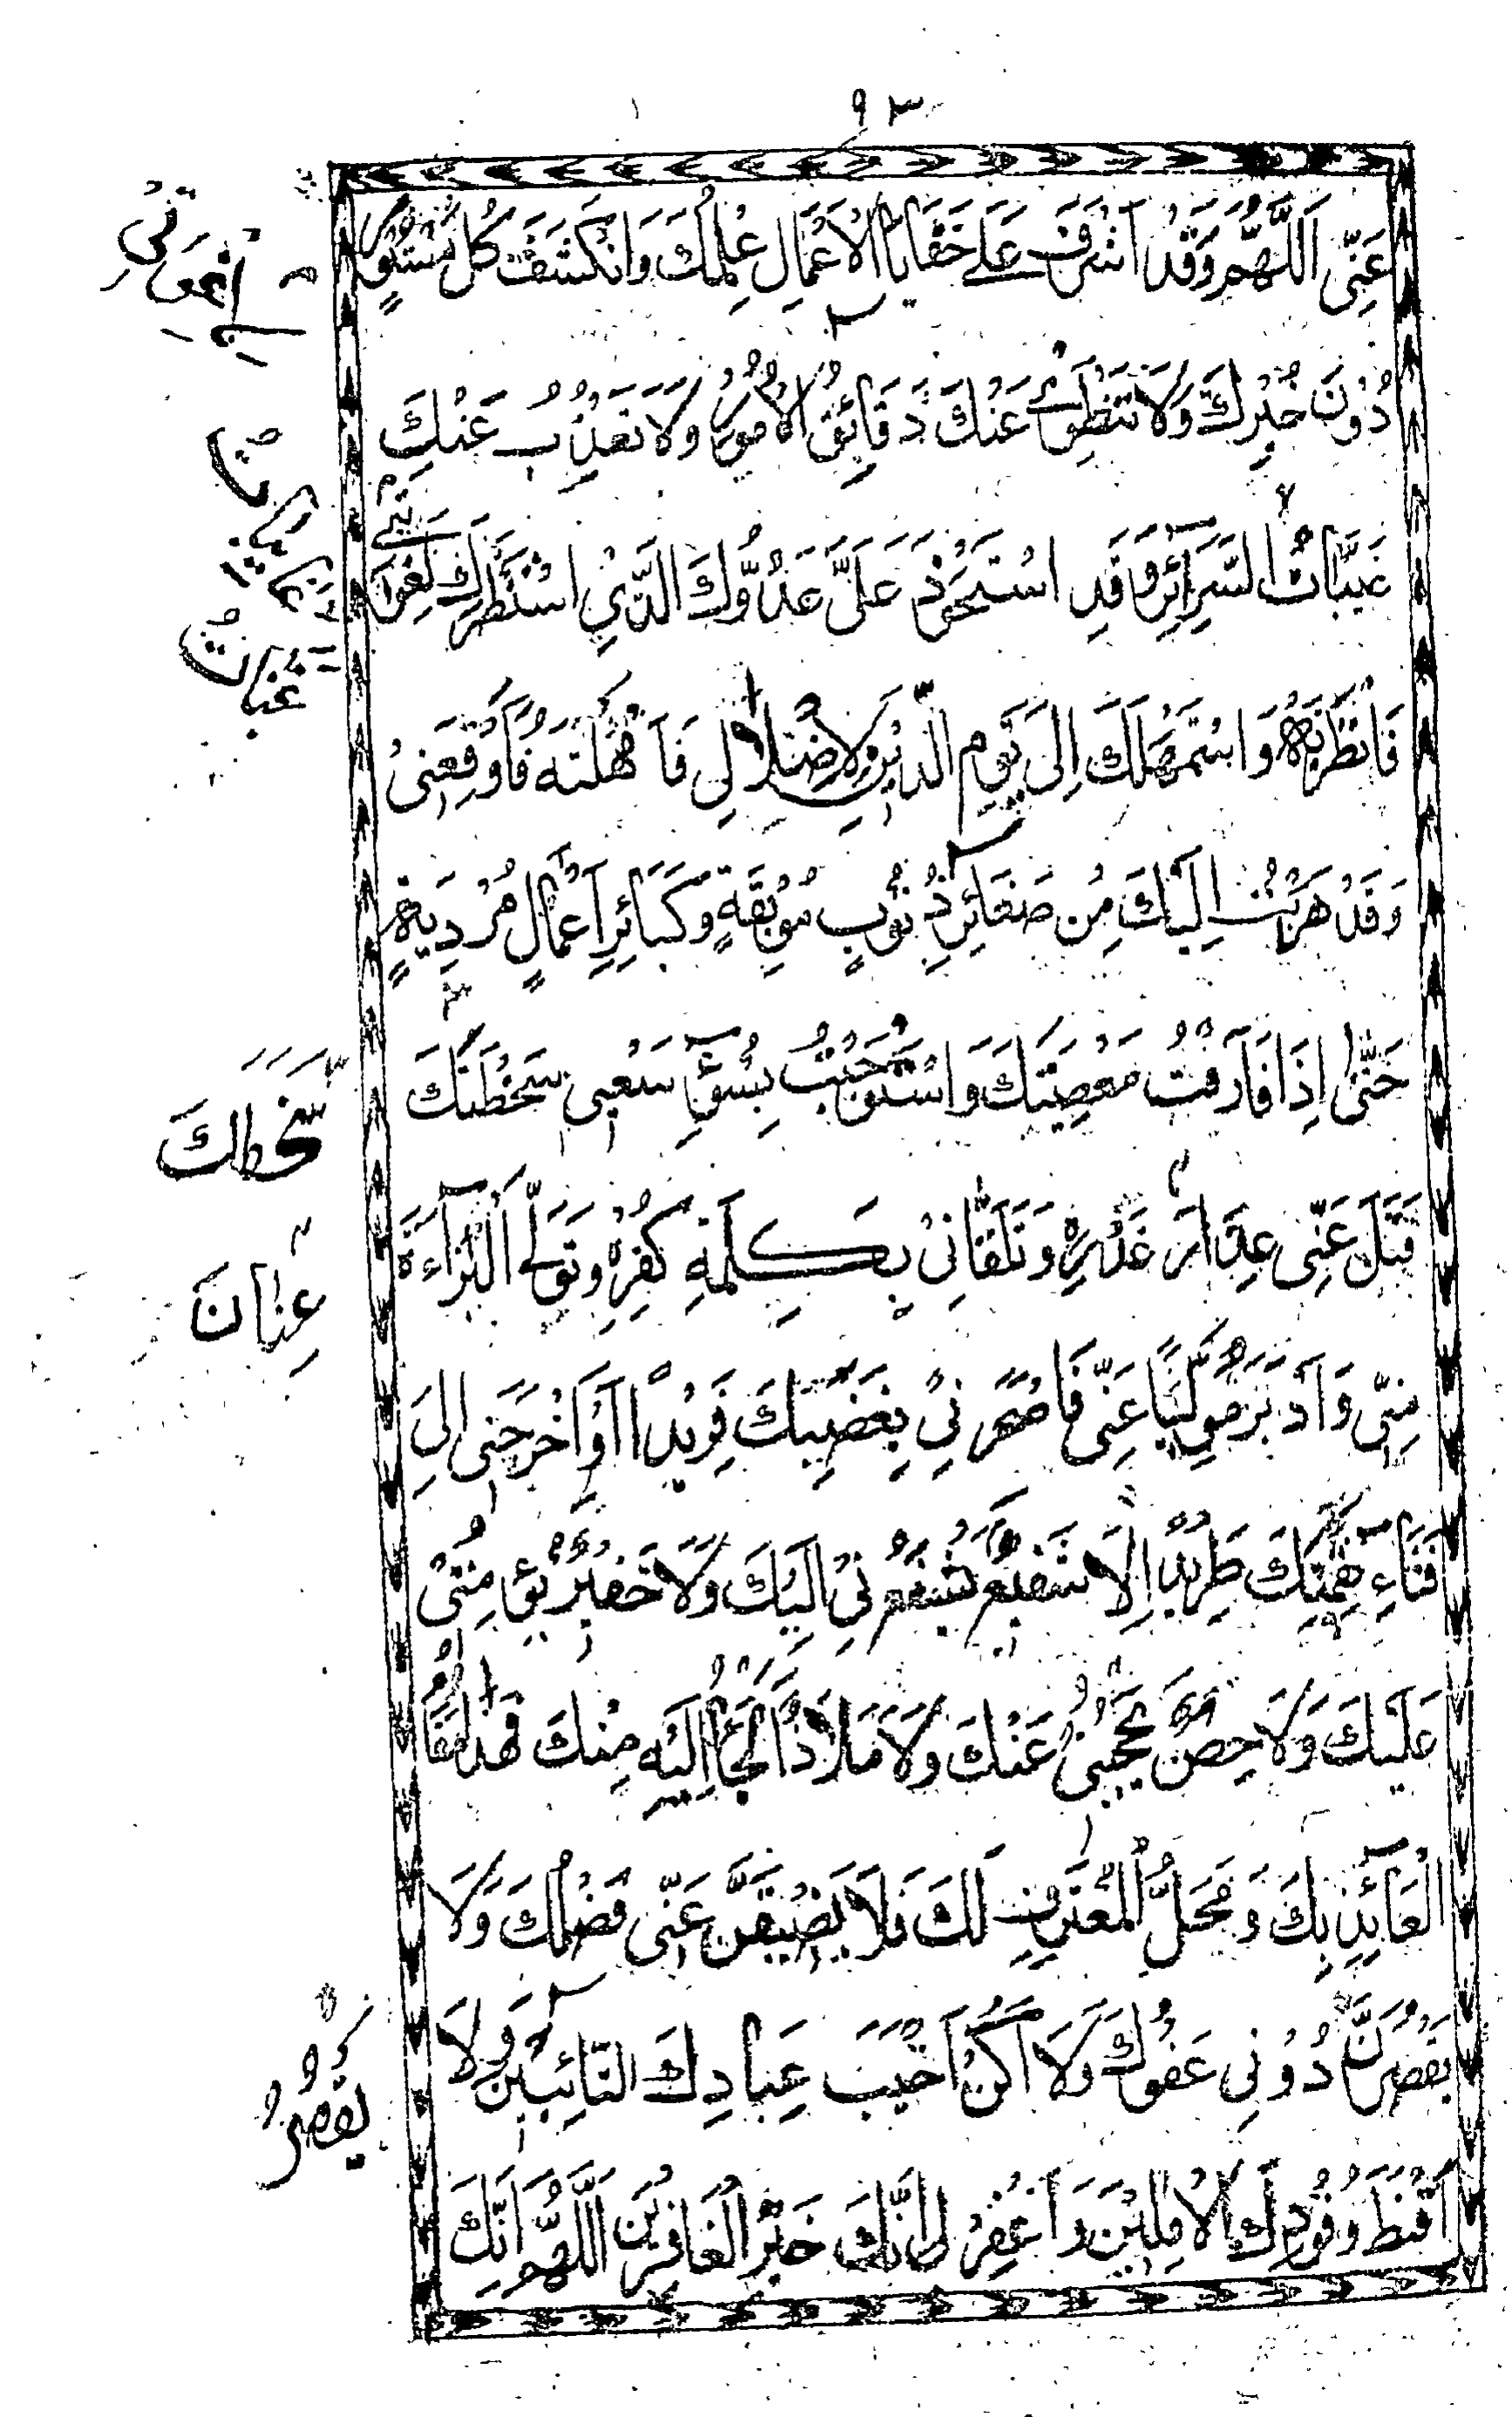 ٩٣
عَنِّي اَللّٰهُمَّ وَقَدْ اَشْرَفَ عَلٰى خَفَايَا الْاَعْمَالِ عِلْمُكَ وَانْكَشَفَ كُلُّ مَسْتُوْرٍ
دُوْنَ خُبْرِكَ وَلَا تَنْطَوِيْ عَنْكَ دَقَائِقُ الْاُمُوْرِ وَلَا تَعْزُبُ عَنْكَ
غَيِّبَاتُ السَّرَآئِرِ وَقَدِ اسْتَحْوَذَ عَلَيَّ عَدُوُّكَ الَّذِيْ اسْتَنْظَرَكَ لِغَوَايَتِيْ
فَاَنْظَرْتَهُ وَاسْتَمْهَلَكَ اِلٰى يَوْمِ الدِّيْنِ لِاِضْلَالِيْ فَاَمْهَلْتَهُ فَاَوْقَعَنِيْ
وَقَدْ هَرَبْتُ اِلَيْكَ مِنْ صَغَائِرِ ذُنُوْبٍ مُوْبِقَةٍ وَكَبَائِرِ اَعْمَالٍ مُرْدِيَةٍ
حَتّٰى اِذَا قَارَفْتُ مَعْصِيَتَكَ وَاسْتَوْجَبْتُ بِسُوْٓءِ سَعْيِيْ سَخْطَتَكَ
فَتَلَ عَنِّيْ عِذَارَ غَدْرِهِ وَتَلَقَّانِيْ بِكَلِمَةِ كُفْرِهِ وَتَوَلَّى الْبَرَآءَةَ
مِنِّيْ وَاَدْبَرَ مُوَلِّيًا عَنِّيْ فَاَصْحَرَنِيْ لِغَضَبِكَ فَرِيْدًا وَاَخْرَجَنِيْ اِلٰى
فَنَاءِ نِقْمَتِكَ طَرِيْدًا لَا شَفِيْعٌ يَشْفَعُ لِيْ اِلَيْكَ وَلَا خَفِيْرٌ يُؤْمِنُنِيْ
عَلَيْكَ وَلَا حِصْنٌ يَحْجُبُنِيْ عَنْكَ وَلَا مَلَاذٌ اَلْجَأُ اِلَيْهِ مِنْكَ فَهٰذَا مَقَامُ
الْعَآئِذِ بِكَ وَمَحَلُّ الْمُعْتَرِفِ لَكَ فَلَا يَضِيْقَنَّ عَنِّيْ فَضْلُكَ وَلَا
يَقْصُرَنَّ دُوْنِيْ عَفْوُكَ وَلَا اَكُنْ اَخْيَبَ عِبَادِكَ التَّائِبِيْنَ وَلَا
اَقْنَطَ وُفُوْدِكَ الْاٰمِلِيْنَ وَاغْفِرْ لِيْ اِنَّكَ خَيْرُ الْغَافِرِيْنَ اَللّٰهُمَّ اِنَّكَ
سَخَطَكَ
عِنَانَ
يَقْصُرْ